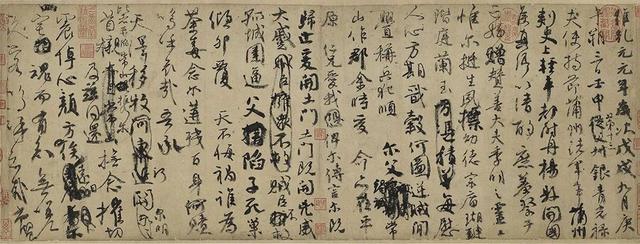 維乾元元年歲次戊戌九月庚
午朔三日壬申第十三叔銀青光祿
夫使持節蒲州諸軍事蒲州
刺史上輕車都尉丹楊縣開國
侯真卿以清酌庶羞祭于
亡姪贈贊善大夫季明之靈曰
惟爾挺生夙標幼德宗廟瑚璉
階庭蘭玉每慰
人心方期戩穀何圖逆賊間
釁稱兵犯順爾父竭誠常
山作郡余時受命亦在平
原仁兄愛我俾爾傳言爾既
歸止爰開土門土門既開凶威
大蹙賊臣不救
孤城圍逼父陷子死巢
傾卵覆天不悔禍誰為
荼毒念爾遘殘百身何贖
嗚呼哀哉吾承
天澤移牧河關泉明
比者再陷常山攜爾
首櫬及茲同還撫念摧切
震悼心顏方俟遠日
卜爾幽宅魂而有知無嗟
久客嗚呼哀哉尚饗